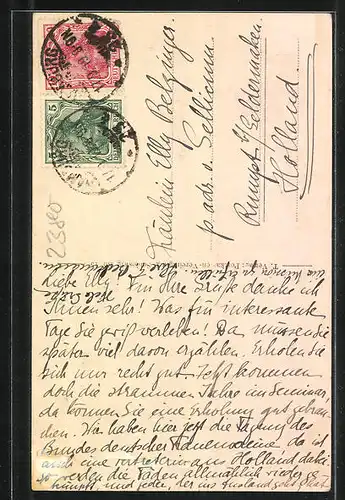 Fräulein Elly Belzinger
p. adr. v. Sellicum
Rumpt b/Geldermalsen
Holland
5
23880
Liebe Elly! Für Ihre Grüße danke ich
Ihnen sehr! Was für interessante
Tage Sie gewiß verleben! Da müssen Sie
später viel davon erzählen. Erholen Sie
sich nur recht gut. Jetzt kommen
doch die strammen Jahre im Seminar,
da können Sie eine Erholung gut gebrau-
chen. Wir haben hier jetzt die Tagung des
Bundes deutscher Frauenvereine da ist
auch eine Vertreterin von Holland dabei.
so werden die Fäden allmählich wieder ge-
knüpft, und jeder, der ins Ausland geht